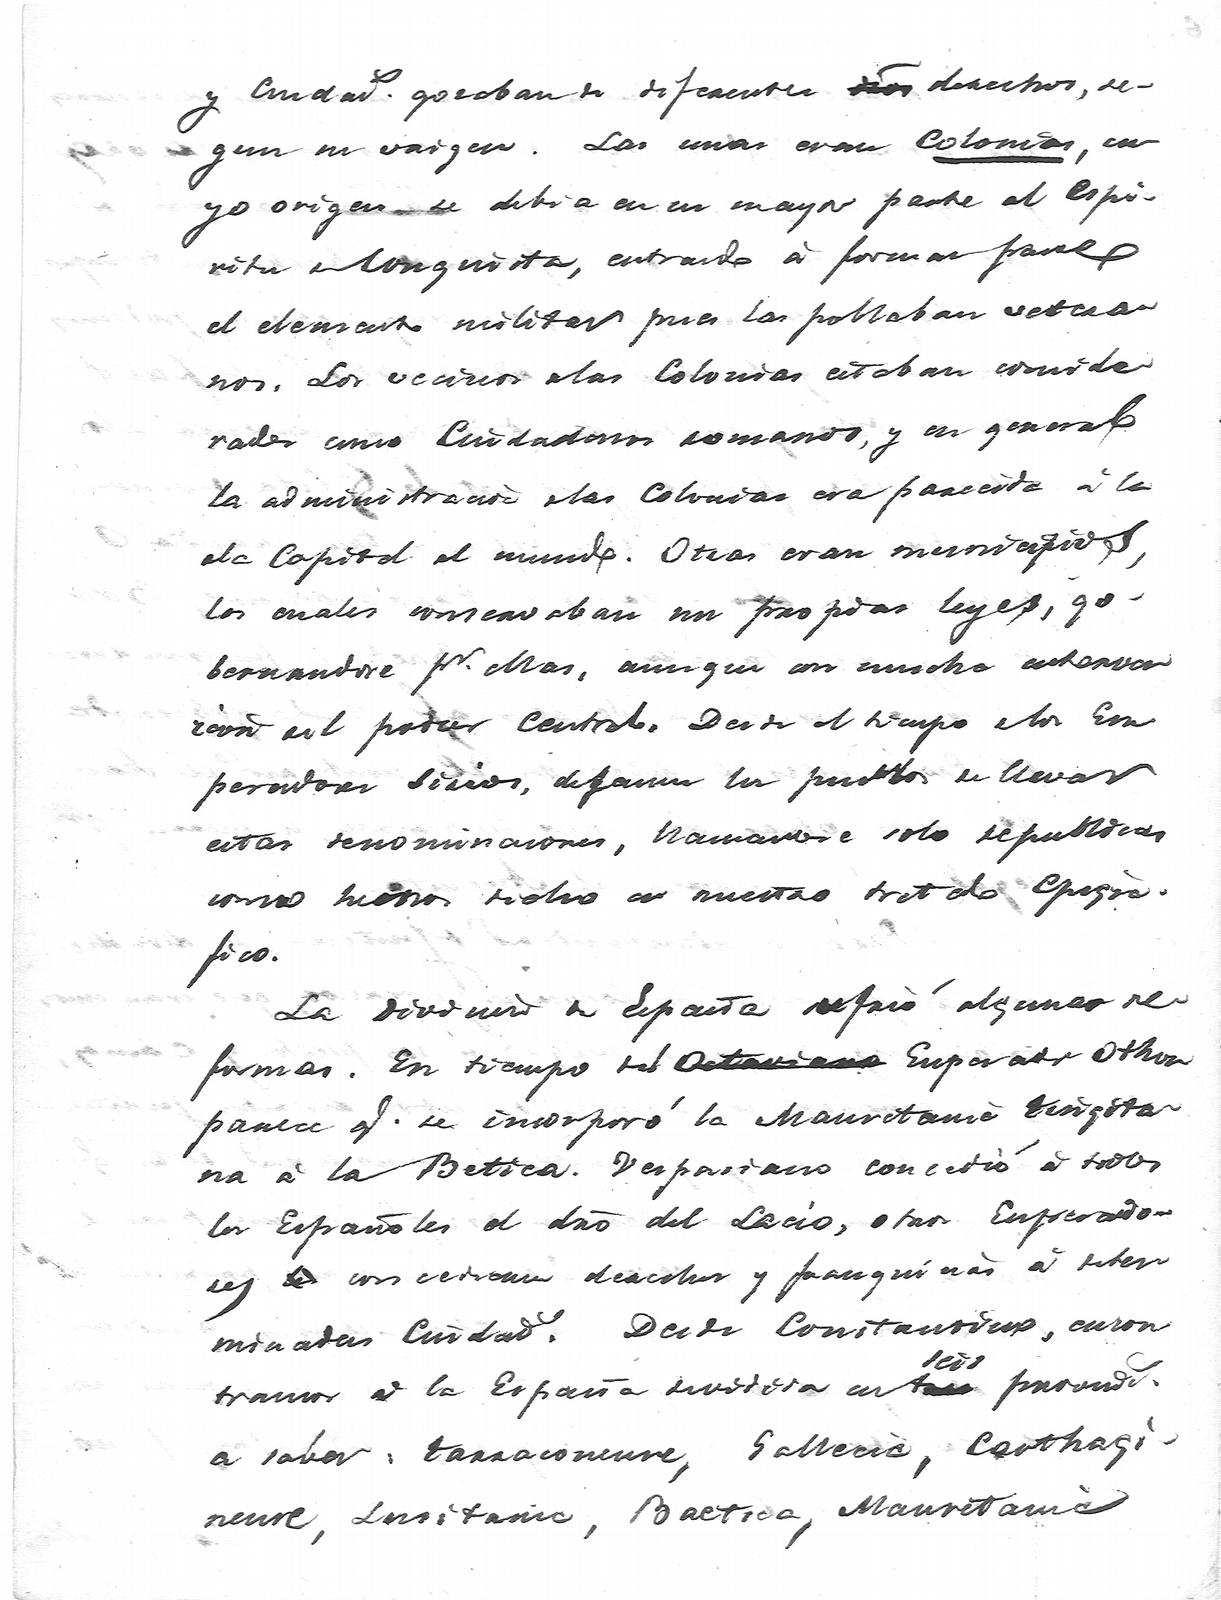 y Ciudad.s gozaban de diferentes dros derechos, se-
gun su origen. Las unas eran Colonias, cu-
yo origen se debia en su mayor parte al Espi-
ritu de Conquista, entrando à formar parte
el elemento militar pues las poblaban vetera-
nos. Los vecinos de las Colonias estaban conside-
rados como Ciudadanos romanos, y en general
la administracion de las Colonias era parecida à la
de la Capital del mundo. Otras eran municipios,
los cuales conservaban sus propias leyes, go-
bernandose p.r ellas, aunque con mucha interven
cion del poder Central. Desde el tiempo de los Em
peradores Sirios, dejaron los pueblos de llevar
estas denominaciones, llamandose solo republicas
como hemos dicho en nuestro tratado Epigrà-
fico.
La division de España sufrió algunas re-
formas. En tiempo del Octaviano Emperador Othon
parece q.e se incorporó la Mauretania tingita-
na à la Betica. Vespasiano concedió à todos
los Españoles el dro del Lacio, otros Emperado-
res concedieron derechos y franquicias à deter
minadas Ciudad.s. Desde Constantino, encon
tramos à la España dividida en tres seis provinci.s
a saber: tarraconense, Gallecia, Carthagi-
nense, Lusitania, Baetica, Mauretania